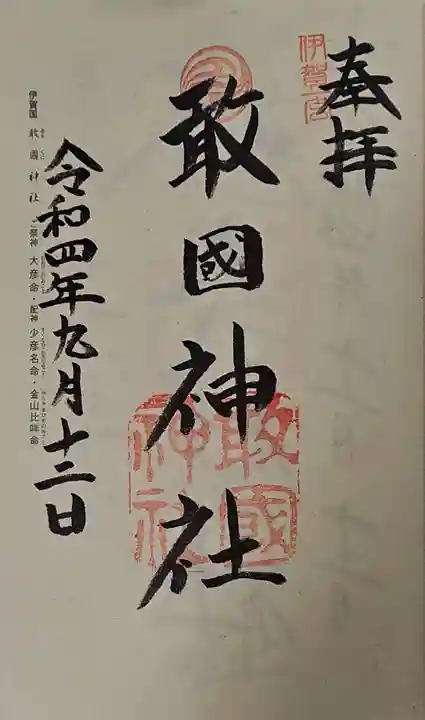 奉拝
伊賀一宮
敢國神社
敢國神社
令和四年九月十二日
伊賀国 敢國神社 ご祭神 大彦命・配神 少彦名命・金山比咩命